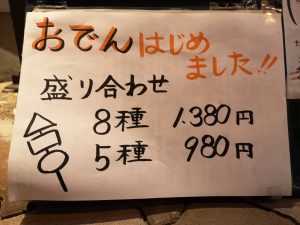 おでんはじめ
ました!!
盛り合わせ
8種 1.380円
5種 980円